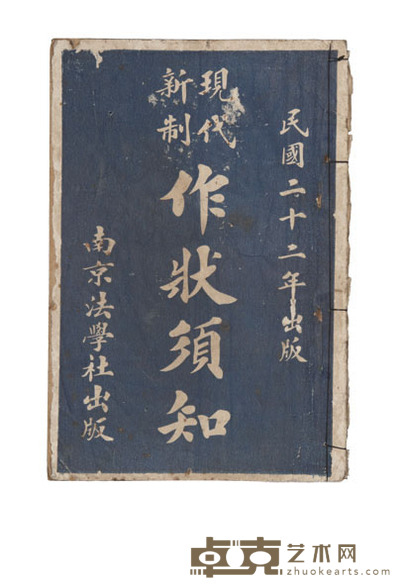 民國二十二年出版
現代
新制
作狀須知
南京法學社出版
卓克艺术网
zhuokearts.com